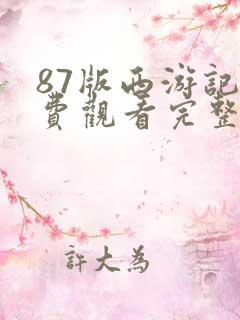 87版西游記
費觀看完整
許大為